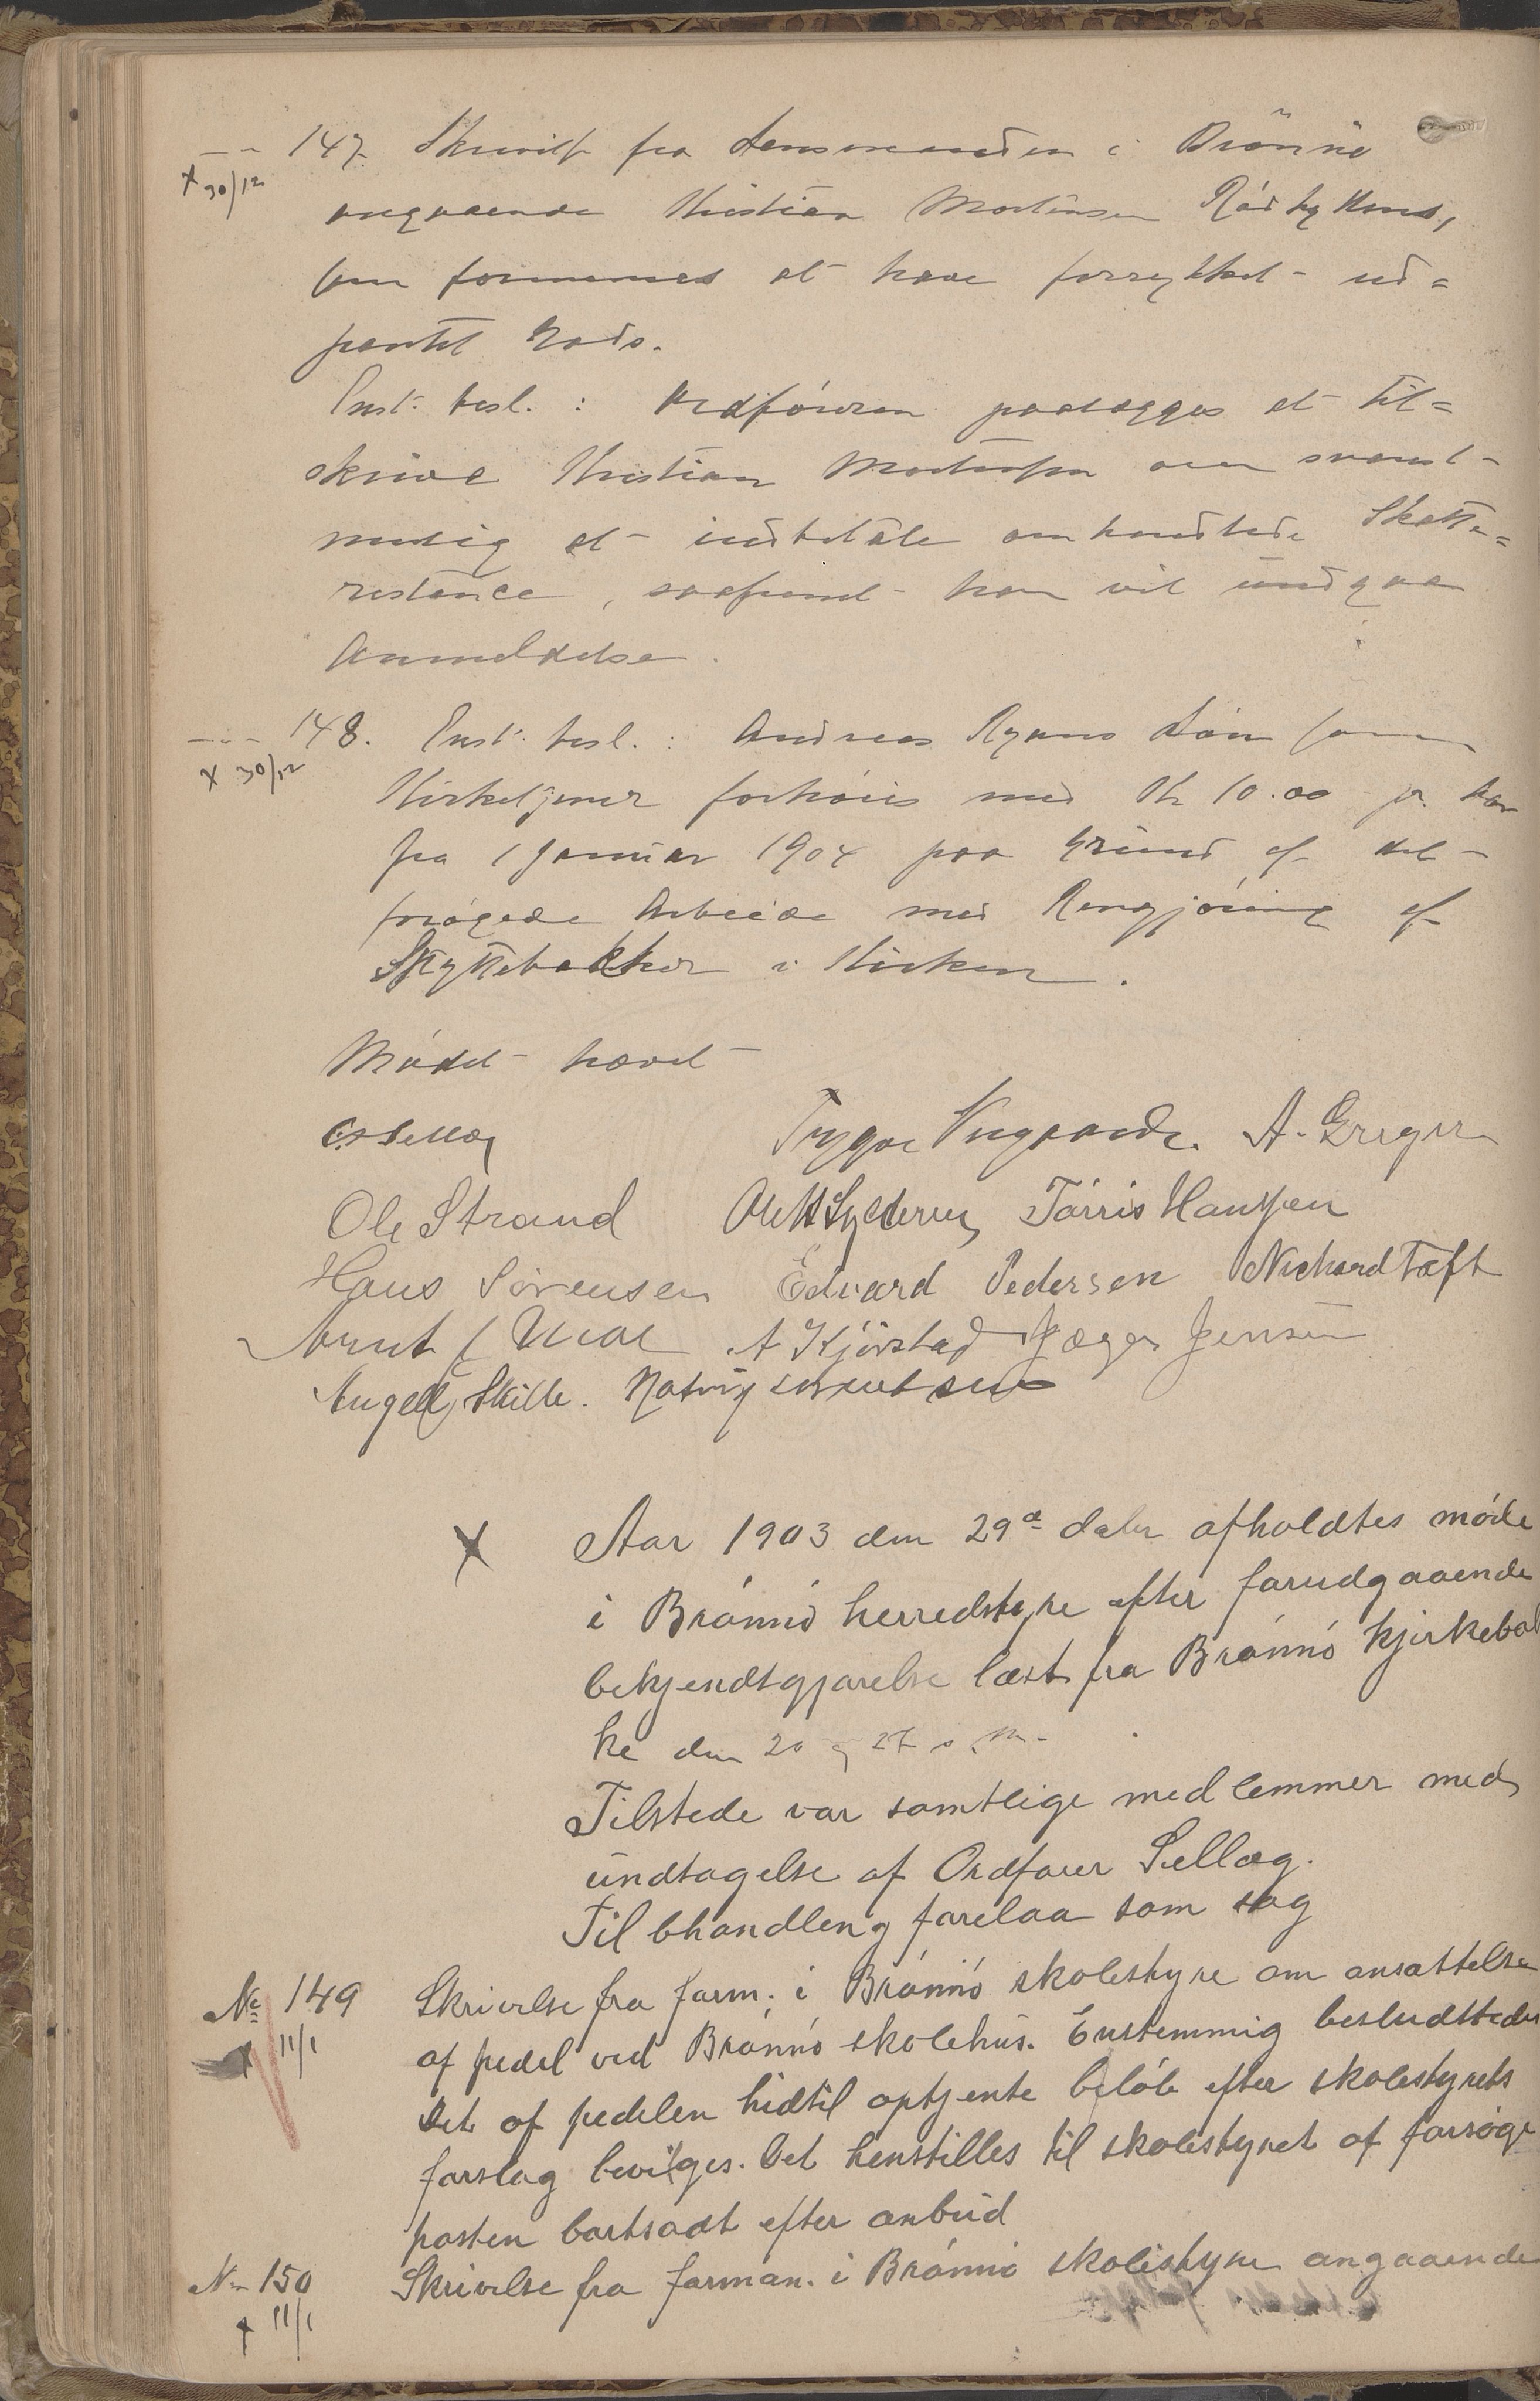 147. Skrivelse fra Lensmanden i Brönnö
x 30/12
angaaende Kristian Mortensen
som formenes at have forrykket ud=
pantet Gods.
Enst. besl. : Ordföreren paalægges at til=
skrive Kristian Mortensen om snarest
mulig at indbetale omhandlede Skatte=
restance, saafremt han vil undgaa
Anmeldelse.
148. Enst. besl. : Andreas Lön som
x 30/12
Kirketjener forhöies med Kr 10.00 pr. Aar
fra 1 Januar 1904 paa Grund af det
forögede Arbeide med Rengjöring af
Spyttebakker i Kirken.
Mödet hævet
Sellæg Trygve A. Greger
Ole Strand Törris Hanssen
Hans Sörensen Edvard Pedersen Richard Toft
Arnt A Kjörstad Jæger Jensen
Angell Skille.
x Aar 1903 den 29de dcbr afholdtes möde
i Brönnö herredstyre efter forudgaaende
bekjendtgjörelse læst fra Brönnö kjirkebak
ke den 20 og 27 s. m.
Tilstede var samtlige medlemmer med
undtagelse af Ordförer Sellæg.
Til bhandling forelaa som sag
No 149 Skrivelse fra form. i Brönnö skolestyre om ansættelse
11/1
af pedel ved Brönnö skolehus. Enstemmig besludttedes
Det af pedelen hidtil optjente belöb efter skolestyrets
forslag bevilges. Det henstilles til skolestyret at forsöge
posten bortsadt efter anbud
No 150 Skrivelse fra forman. i Brönnö skolestyre angaaende
x 11/1